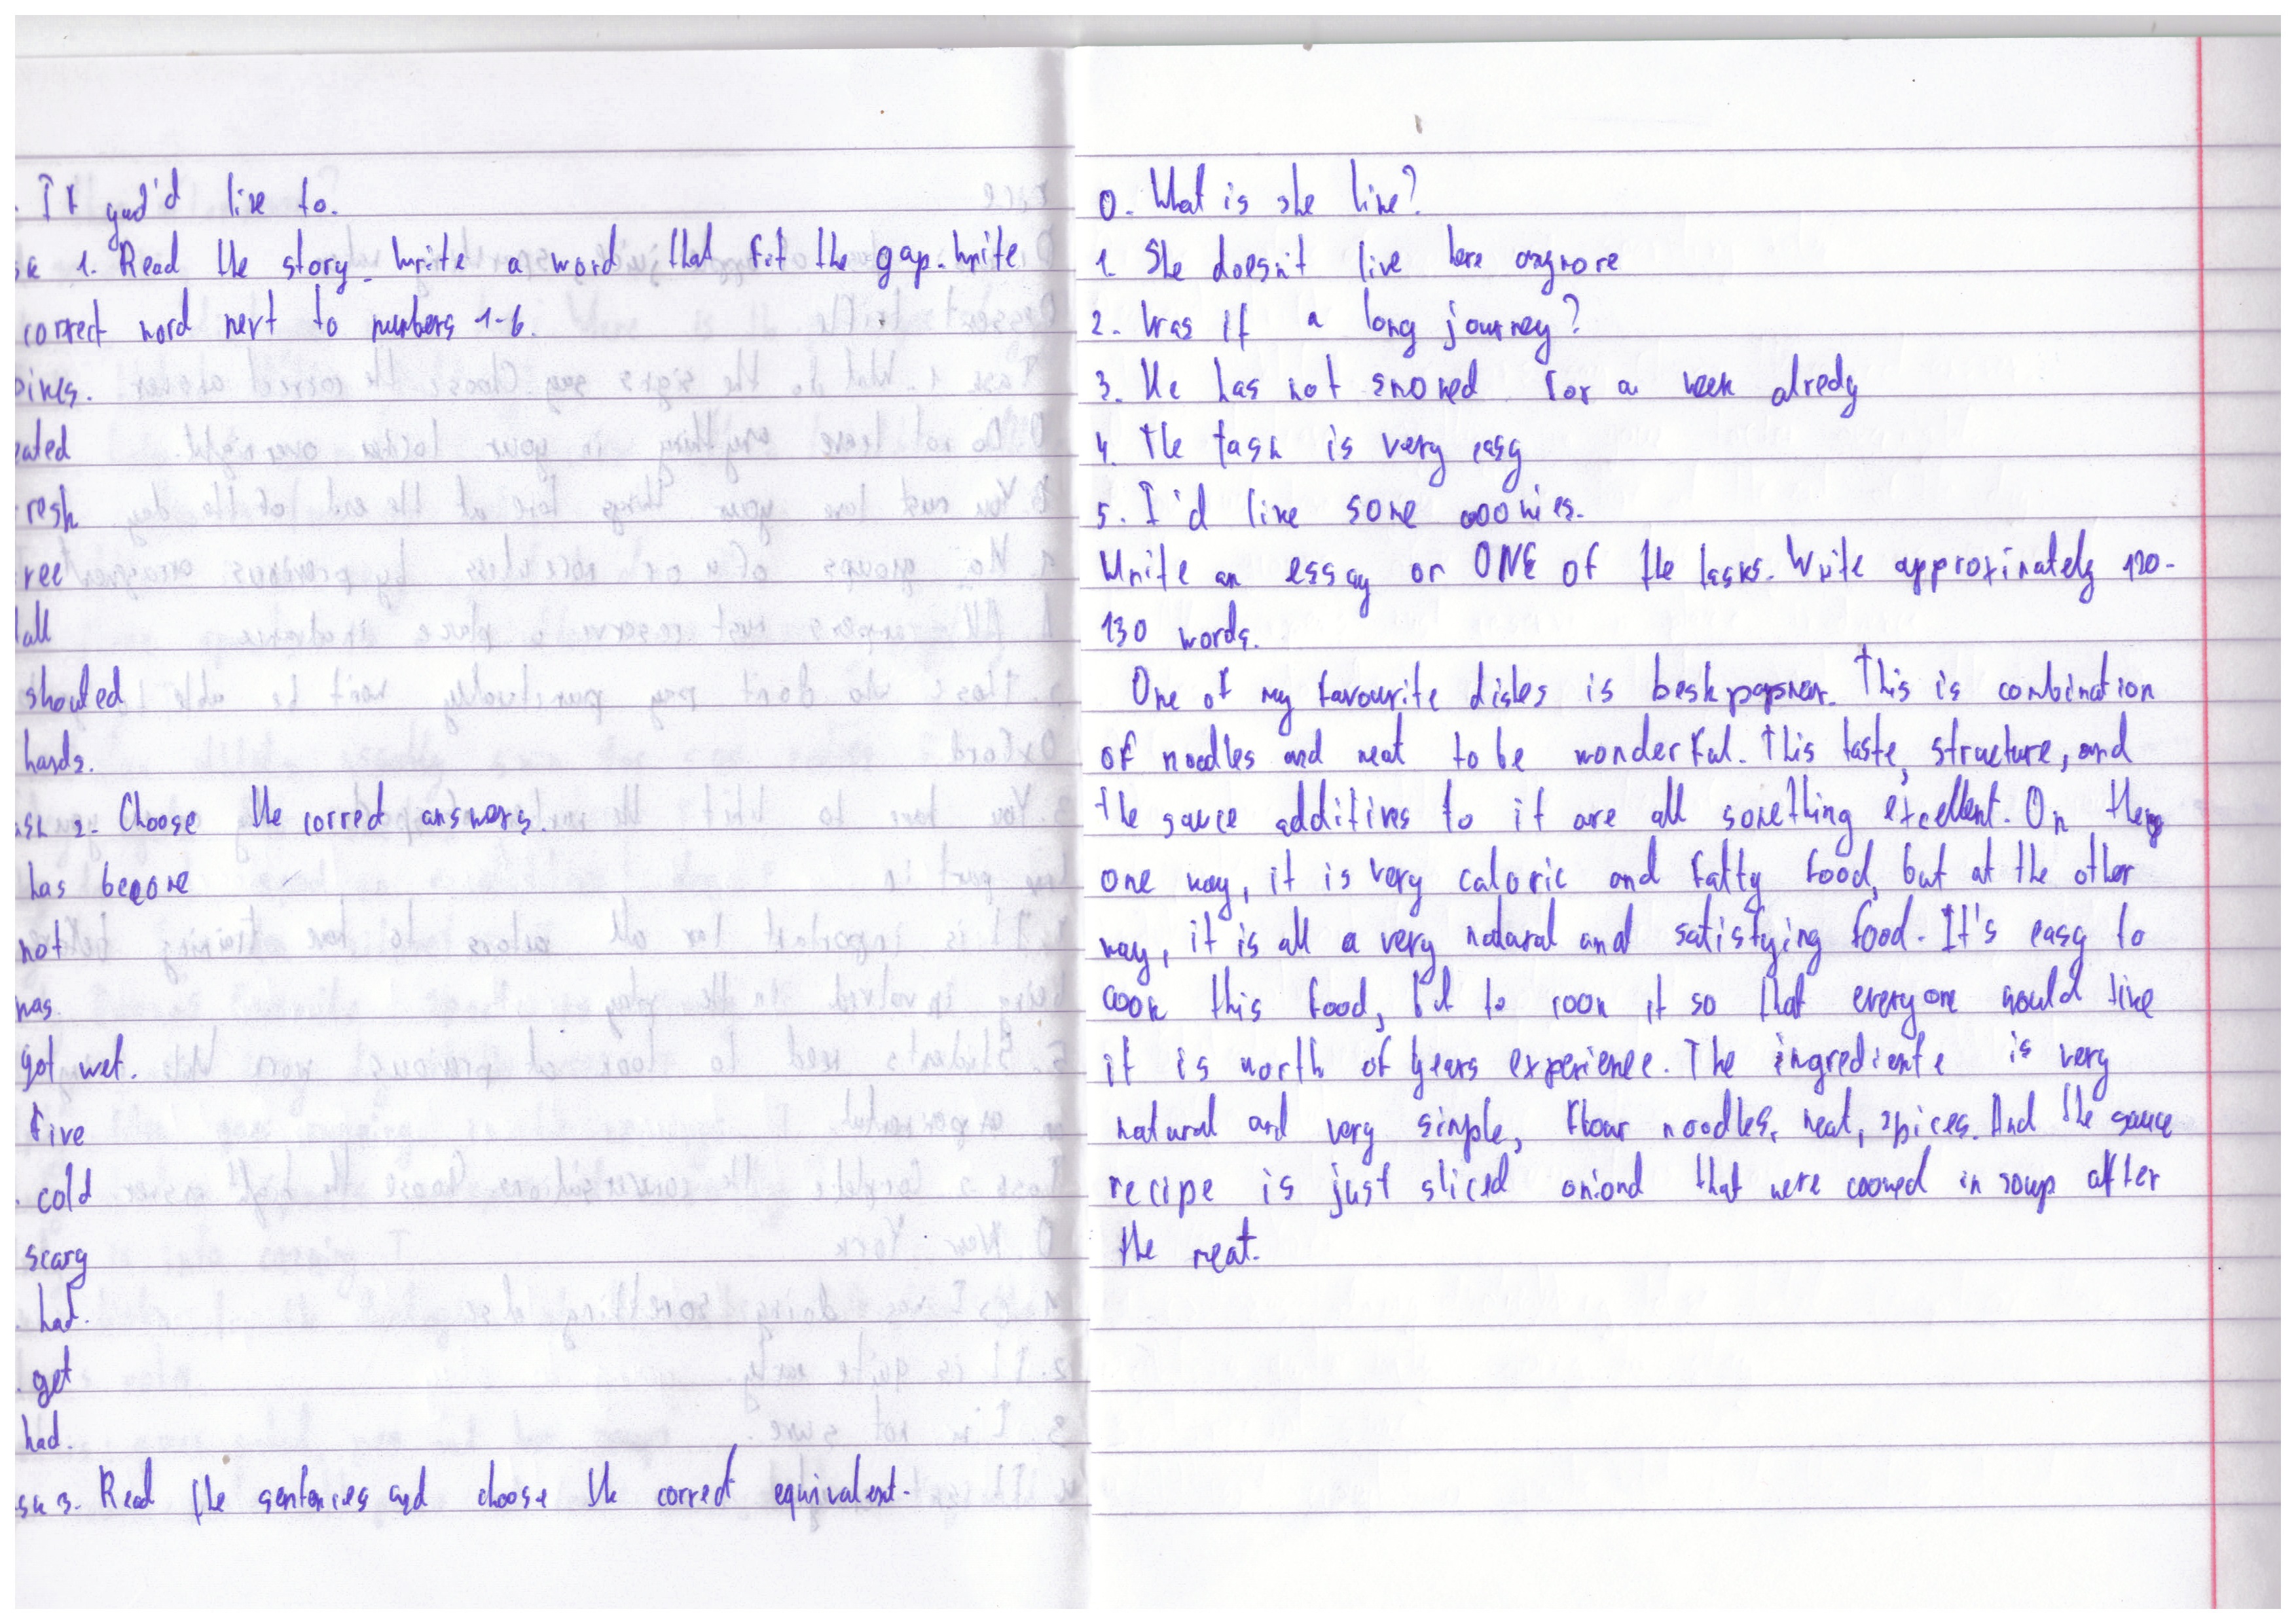 . If you'd like to.
sk 1. Read the story. Write a word that fit the gap. Write
correct word next to numbers 1-6.
ated
resh
ree
all
shouted
hands.
sk 2. Choose the correct answers.
has become
not
was.
got wet.
five
. cold
scary
hat.
. get
had.
sk 3. Read the sentences and choose the correct equivalent.
0. What is she like?
1. She doesn't live here anymore
2. Was it a long journey?
3. He has not smoked for a week alredy
4. The task is very easy
5. I'd like some cookies.
Write an essay or ONE of the tasks. Write approximately 120-
130 words.
One of my favourite dishes is This is combination
of noodles and meat to be wonderful. This taste, structure, and
the sauce additives to it are all something excellent. On the
one way, it is very caloric and fatty food, but at the other
way, it is all a very natural and satisfying food. It's easy to
cook this food, but to cook it so that everyone would like
it is worth of years experience. The ingrediente is very
natural and very simple, flour noodles, meat, spices. And the sauce
recipe is just sliced oniond that were cooked in soup after
the meat.